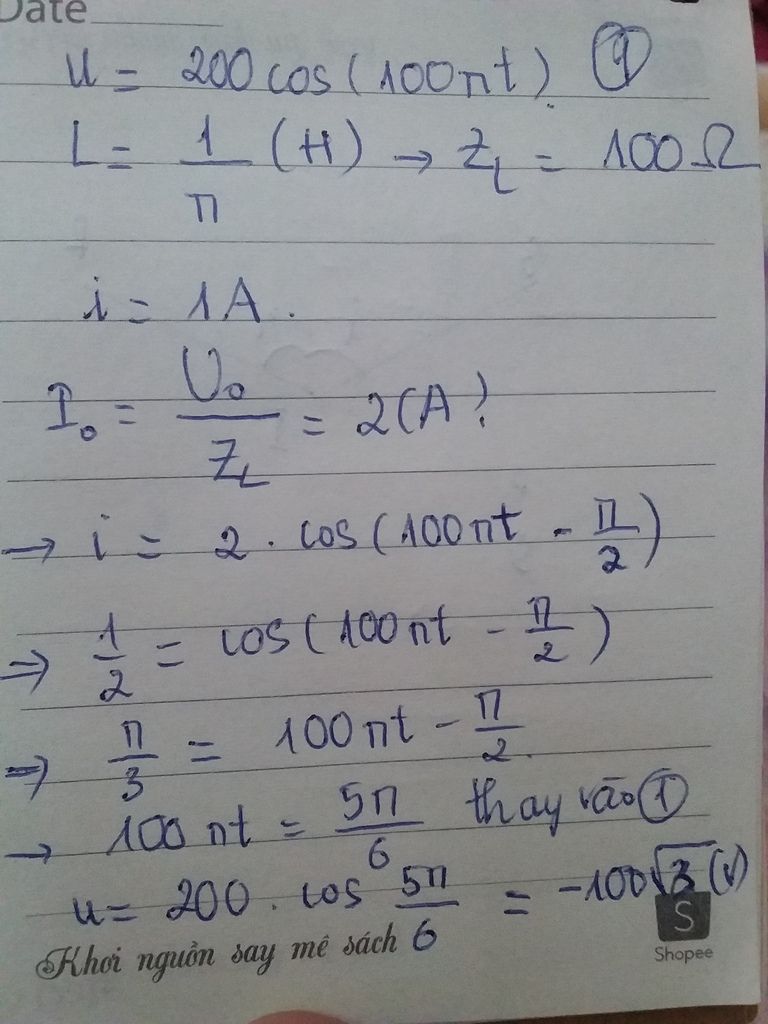 Date
u = 200 cos(100πt). ①
L = 1/π (H) → Z_L = 100 Ω
i = 1A.
I₀ = U₀/Z_L = 2(A)
→ i = 2 . cos(100πt - π/2)
⇒ 1/2 = cos(100πt - π/2)
⇒ π/3 = 100πt - π/2
→ 100πt = 5π/6 thay vào ①
u = 200 . cos 5π/6 = -100√3 (V)
Khơi nguồn say mê sách
S
Shopee